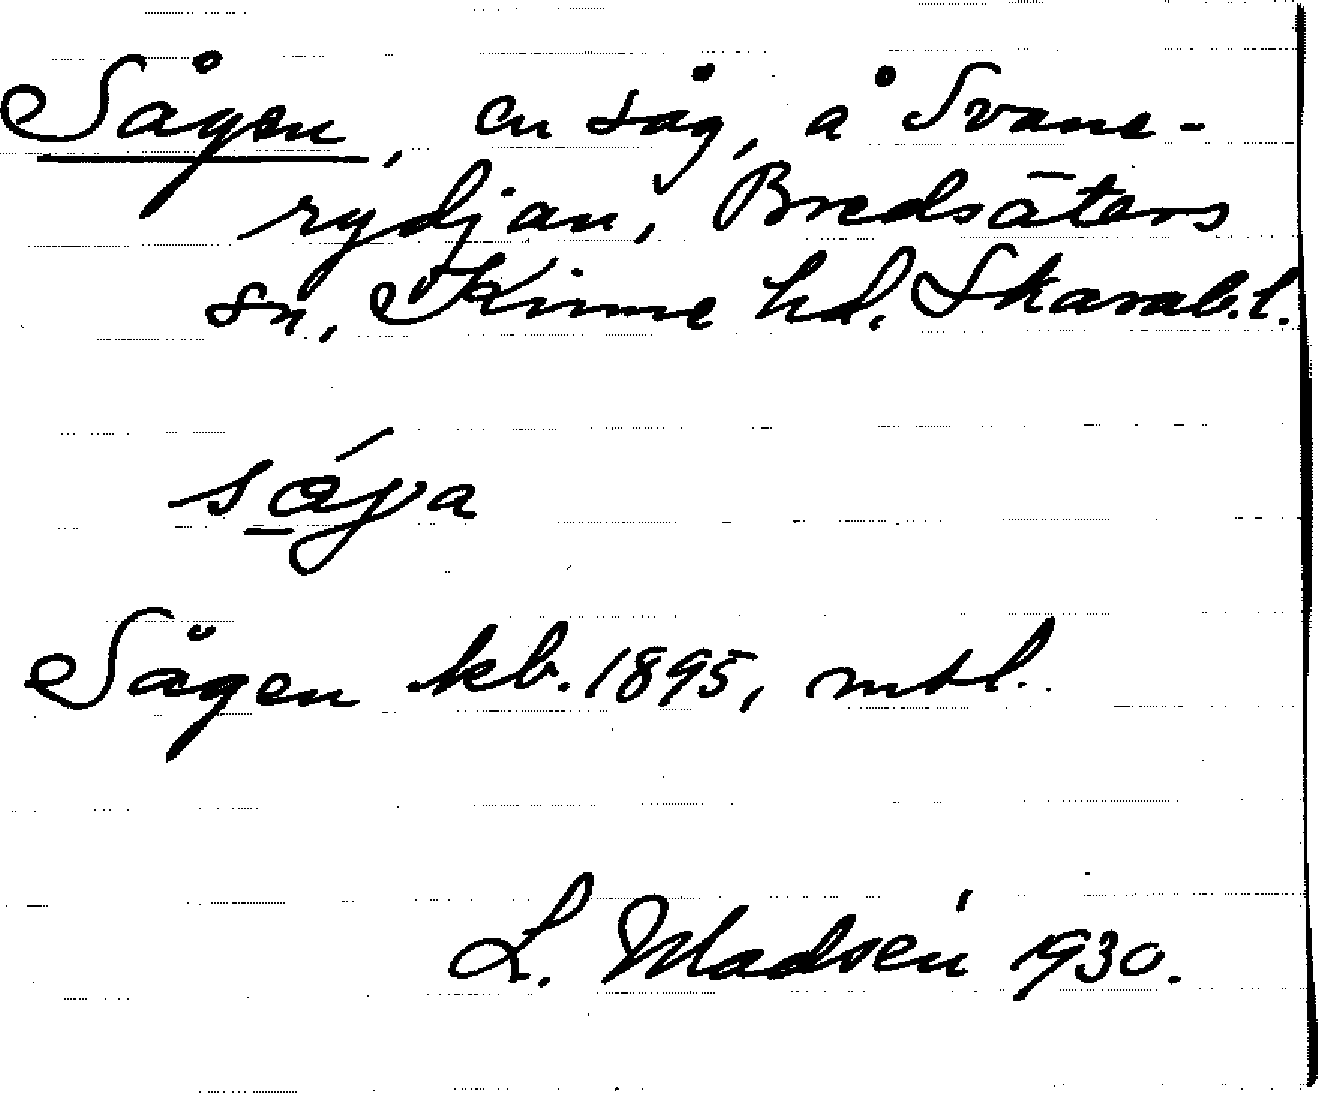 Sågen, en såg, å Svane-
rydjan, Bredsäters
sn, Kinne hd. Skarab.l.
Sågen kb. 1895, mtl.
L. Madsén 1930.